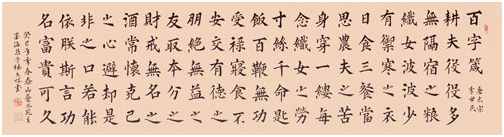 百字箴
唐太宗
李世民
耕夫役役多
無隔宿之粮
織女波波少
有禦寒之衣
日食三餐當
思農夫之苦
身穿一縷每
念織女之勞
寸絲千命匙
飯百鞭無功
受祿寢食不
安交有德之
朋絕無益之
友取本分之
財戒無名之
酒常懷克己
之心避却是
非之口若能
依朕斯言功
名富貴可久